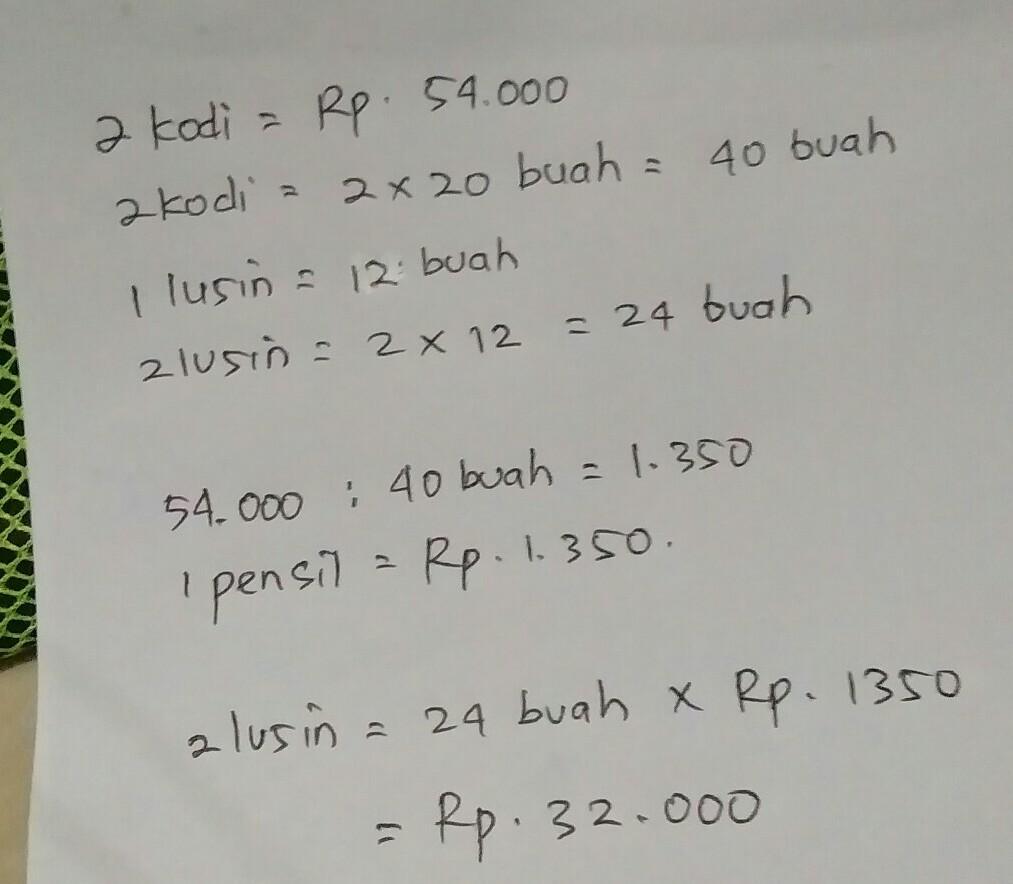 2 kodi = Rp. 54.000
2 kodi = 2 x 20 buah = 40 buah
1 lusin = 12 buah
2 lusin = 2 x 12 = 24 buah
54.000 : 40 buah = 1.350
1 pensil = Rp. 1.350.
2 lusin = 24 buah x Rp. 1350
= Rp. 32.000